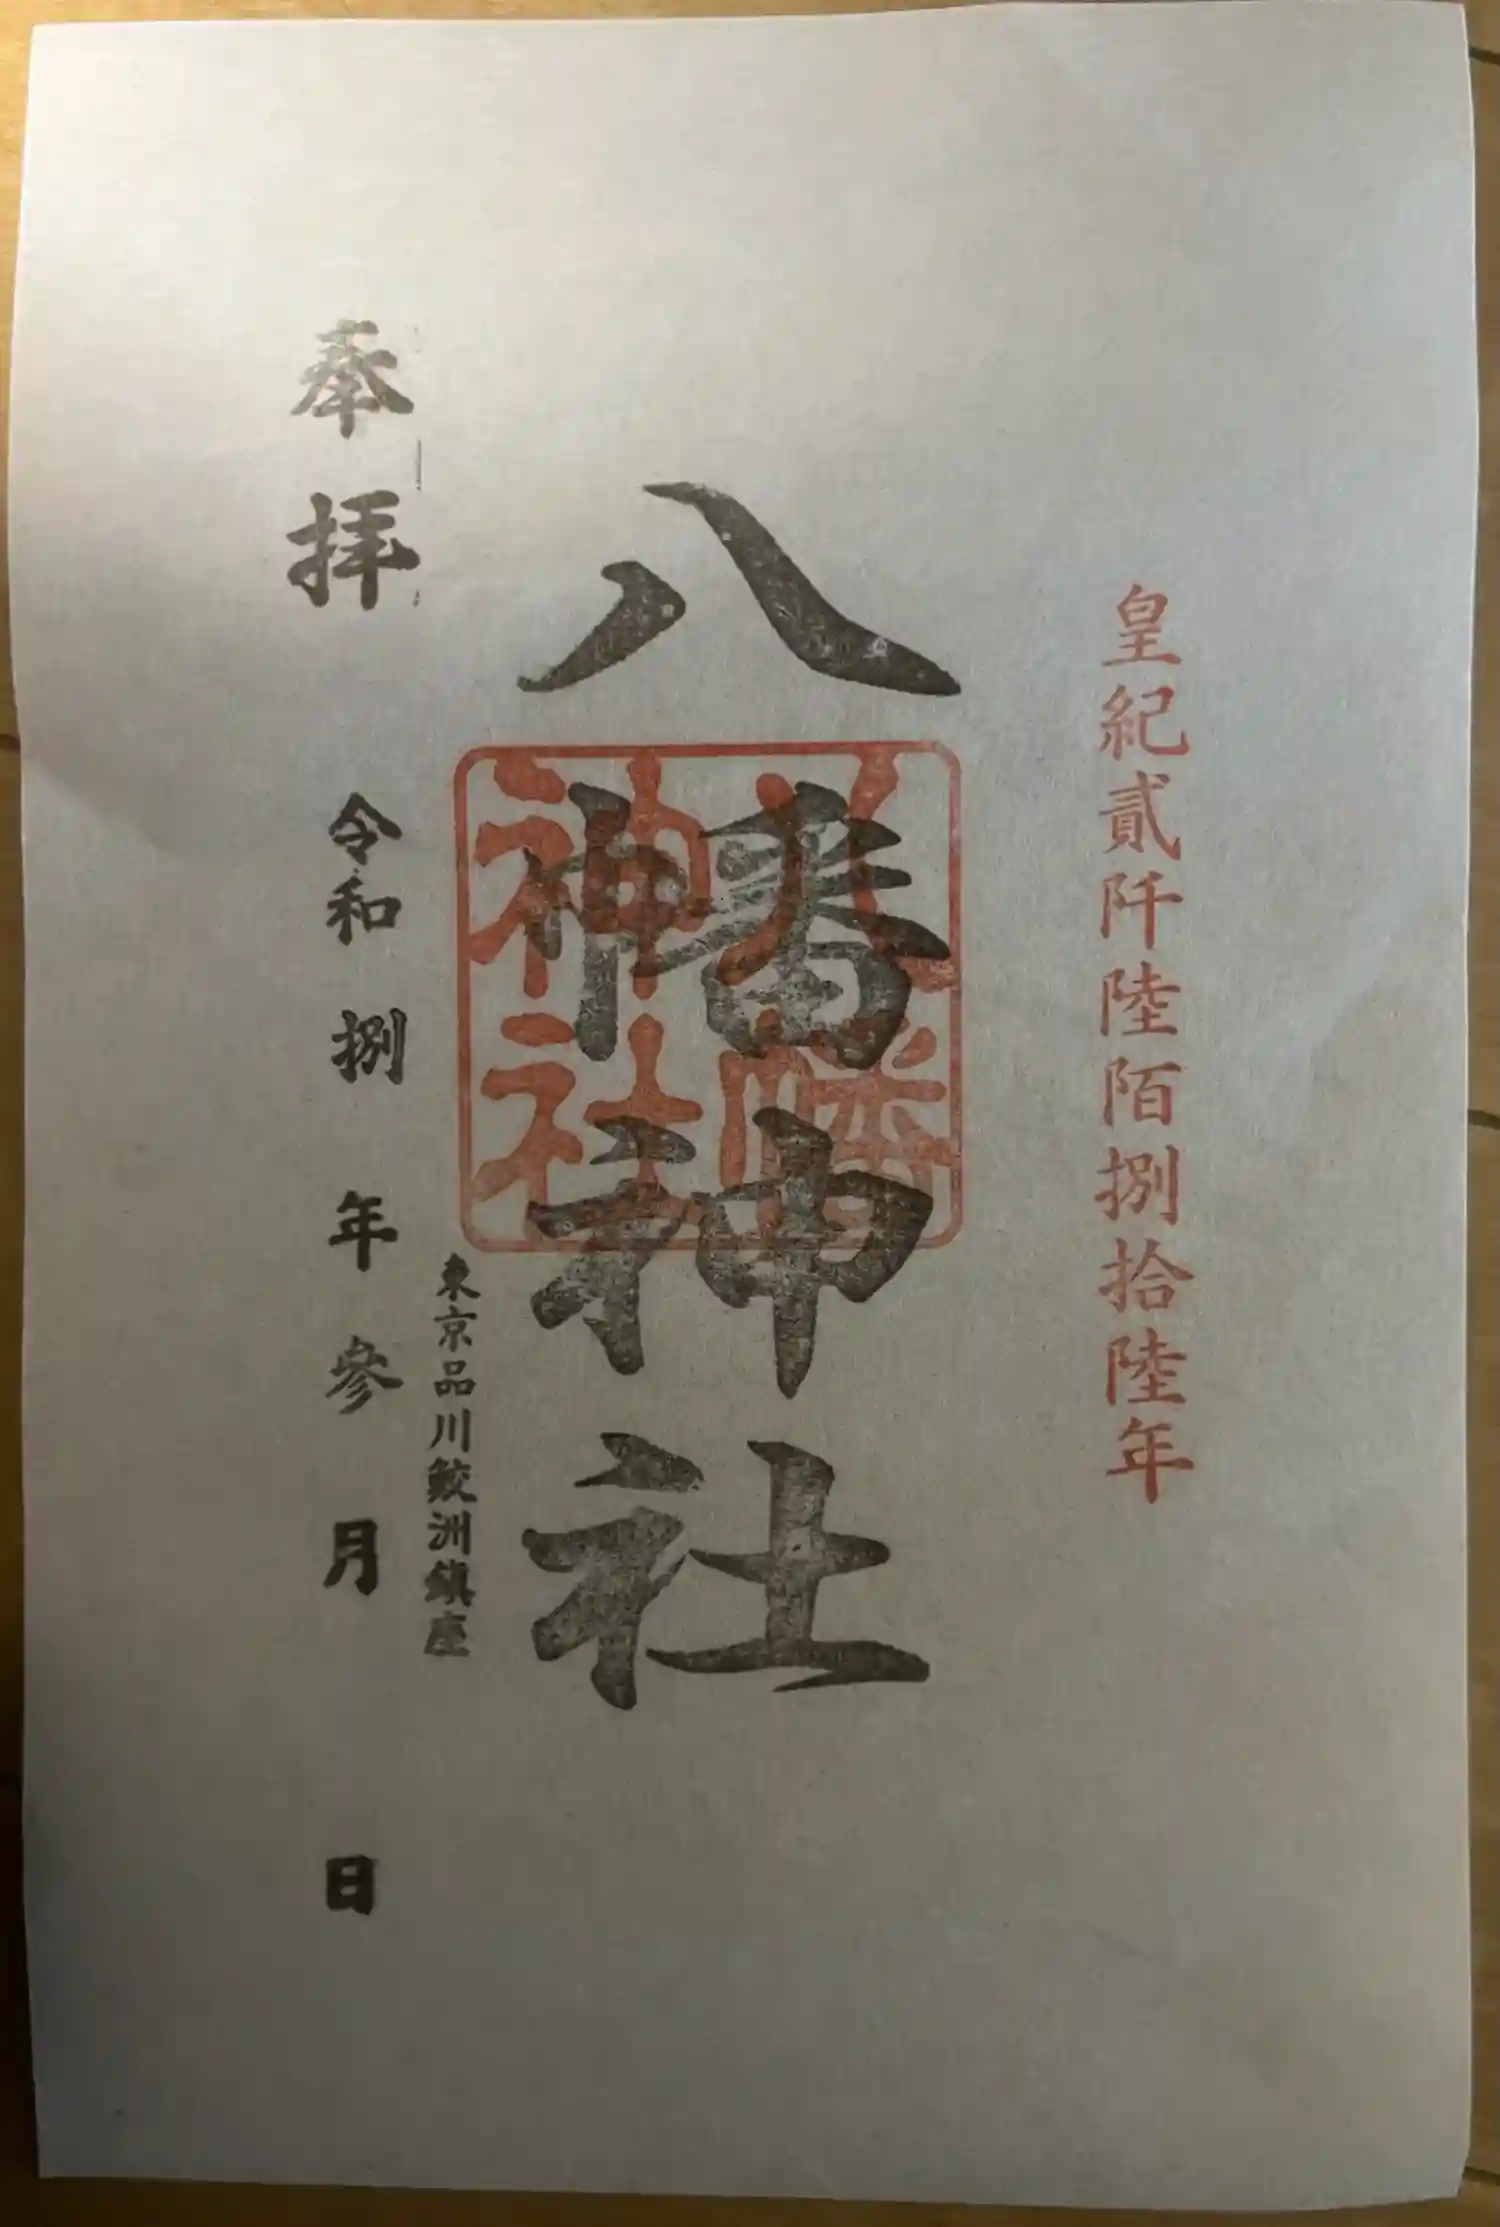 皇紀貳阡陸陌捌拾陸年
八幡神社
八幡
神社
東京品川鮫洲鎮座
奉拝
令和捌年参月日